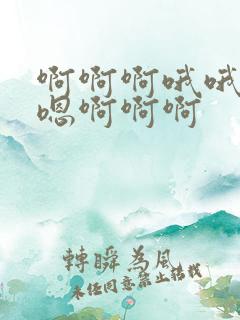 啊啊啊哦哦
嗯啊啊啊
轉瞬為風
未经同意禁止转载